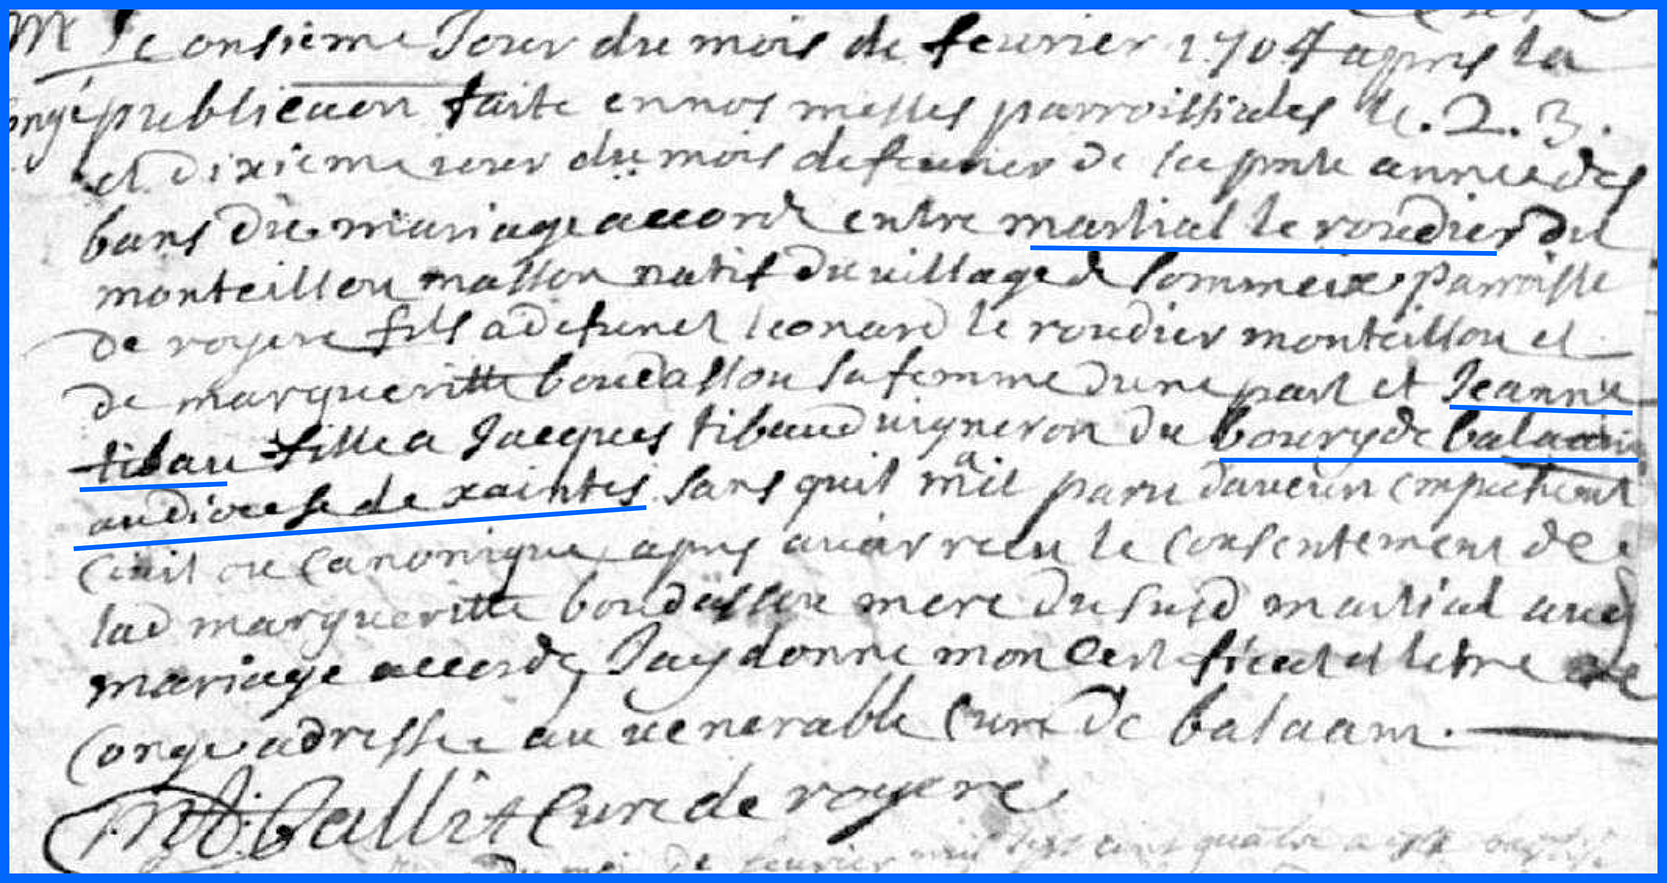 M Le onsieme Jour du mois de feurier 1704 apres la
ongé publicaon faite en nos messes parroissiales le. 2. 3.
et dixieme iour du mois de feurier de la pnte année des
bans du mariage accordé entre martial le roudier du
monteillou masson natif du uillage de Sommeix parroisse
de royere fils a defunct leonard le roudier monteillou et
de margueritte boudassou sa femme dune part et Jeanne
tibau fille a Jacques tibaud uigneron du bourg de balaam
au diocese de xaintes sans quil mait paru daucun empechement
ciuil ou canonique apres auoir receu le consentement de
lad margueritte boudassou mere du susd martial aud
mariage accordé, Jay donné mon certificat et letre de
conge adressee au uenerable Curé de balaam.
Curé de royere
du moi de feurier mil sept cent quatre a esté